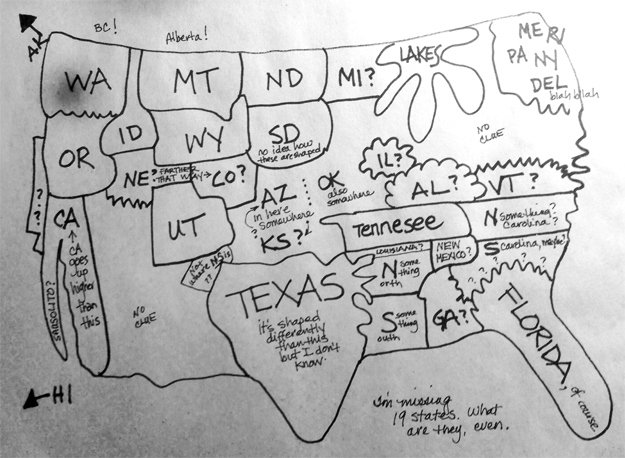 BC!
Alberta!
A.
WA
MT
ND
MI?
LAKES
ME RI
PA NY
DEL
blah blah
NO
CLUE
OR
ID
WY
SD
no idea how
these are shaped
NE? FARTHER
THAT WAY →
CO?
IL?
AL?
VT?
? ? ?
CA
↑
CA
goes
up
higher
than
this
SAUSOLITO?
UT
AZ
in here
somewhere
? KS? ?
OK
also
somewhere
Tennesee
N something?
Carolina?
S Carolina, maybe?
LOUISIANA?
NEW
MEXICO?
N some
thing
orth
S some
thing
outh
GA?
? ? ? ? ? ?
FLORIDA,
of course.
Not
where MS is
??
NO
CLUE
TEXAS
it's shaped
differently
than this
but I don't
know.
HI
I'm missing
19 states. What
are they, even.